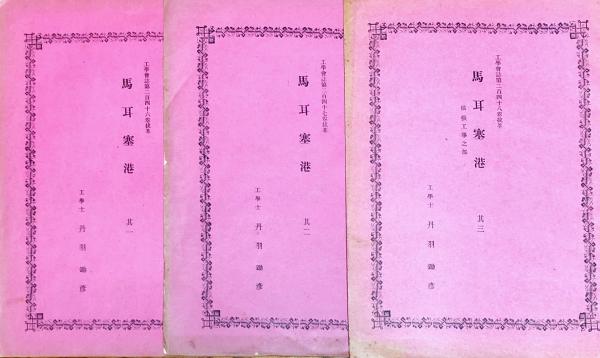 工學會誌第二百四十六卷拔萃
馬耳塞港
其一
工學士 丹羽鋤彦
工學會誌第二百四十七卷拔萃
馬耳塞港
其二
工學士 丹羽鋤彦
工學會誌第二百四十八卷拔萃
馬耳塞港
工學之部
其三
工學士 丹羽鋤彦